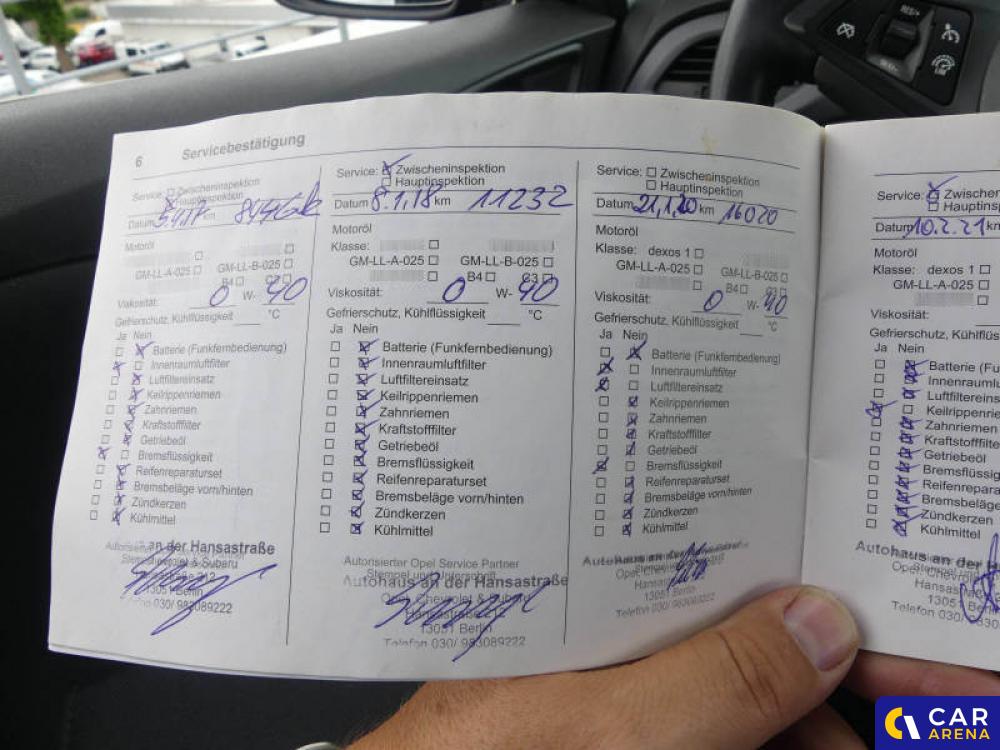 6 Servicebestätigung
Service: Zwischeninspektion
Hauptinspektion
Datum km
Motoröl
GM-LL-A-025 GM-LL-B-025
B4
Viskosität: 0 W- 40
Gefrierschutz, Kühlflüssigkeit °C
Ja Nein
Batterie (Funkfernbedienung)
Innenraumluftfilter
Luftfiltereinsatz
Keilrippenriemen
Zahnriemen
Kraftstofffilter
Getriebeöl
Bremsflüssigkeit
Reifenreparaturset
Bremsbeläge vorn/hinten
Zündkerzen
Kühlmittel
an der Hansastraße
& Subaru
13051 Berlin
Telefon 030/ 983089222
Service: Zwischeninspektion
Hauptinspektion
Datum 8.1.18 km 11232
Motoröl
Klasse:
GM-LL-A-025 GM-LL-B-025
B4 C3
Viskosität: 0 W- 40
Gefrierschutz, Kühlflüssigkeit °C
Ja Nein
Batterie (Funkfernbedienung)
Innenraumluftfilter
Luftfiltereinsatz
Keilrippenriemen
Zahnriemen
Kraftstofffilter
Getriebeöl
Bremsflüssigkeit
Reifenreparaturset
Bremsbeläge vorn/hinten
Zündkerzen
Kühlmittel
Autorisierter Opel Service Partner
Stempel und Unterschrift
Autohaus an der Hansastraße
Opel, Chevrolet & Subaru
Hansastraße 212
13051 Berlin
Telefon 030/ 983089222
Service: Zwischeninspektion
Hauptinspektion
Datum 21.1.20 km 16020
Motoröl
Klasse: dexos 1
GM-LL-A-025
B4 C3
Viskosität: 0 W- 40
Gefrierschutz, Kühlflüssigkeit °C
Ja Nein
Batterie (Funkfernbedienung)
Innenraumluftfilter
Luftfiltereinsatz
Keilrippenriemen
Zahnriemen
Kraftstofffilter
Getriebeöl
Bremsflüssigkeit
Reifenreparaturset
Bremsbeläge vorn/hinten
Zündkerzen
Kühlmittel
Autohaus an der
Opel, Chevrolet
13051 Berlin
Telefon 030/ 983089222
Service: Zwischen
Hauptinsp
Datum 10.2.21 km
Motoröl
Klasse: dexos 1
GM-LL-A-025
Viskosität:
Gefrierschutz, Kühlflüss
Ja Nein
Batterie (Fu
Innenraumlu
Luftfiltereins
Keilrippenrie
Zahnriemen
Kraftstofffilt
Getriebeöl
Bremsflüssi
Reifenrepar
Bremsbeläg
Zündkerzen
Kühlmittel
Autohaus an der H
Opel, Chevrolet
13051
Telefon 030/
RES/+
SET/-
CAR
ARENA